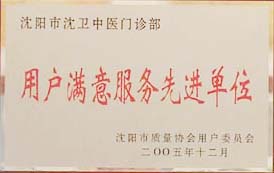 沈阳市沈卫中医门诊部
用户满意服务先进单位
沈阳市质量协会用户委员会
二〇〇五年十二月